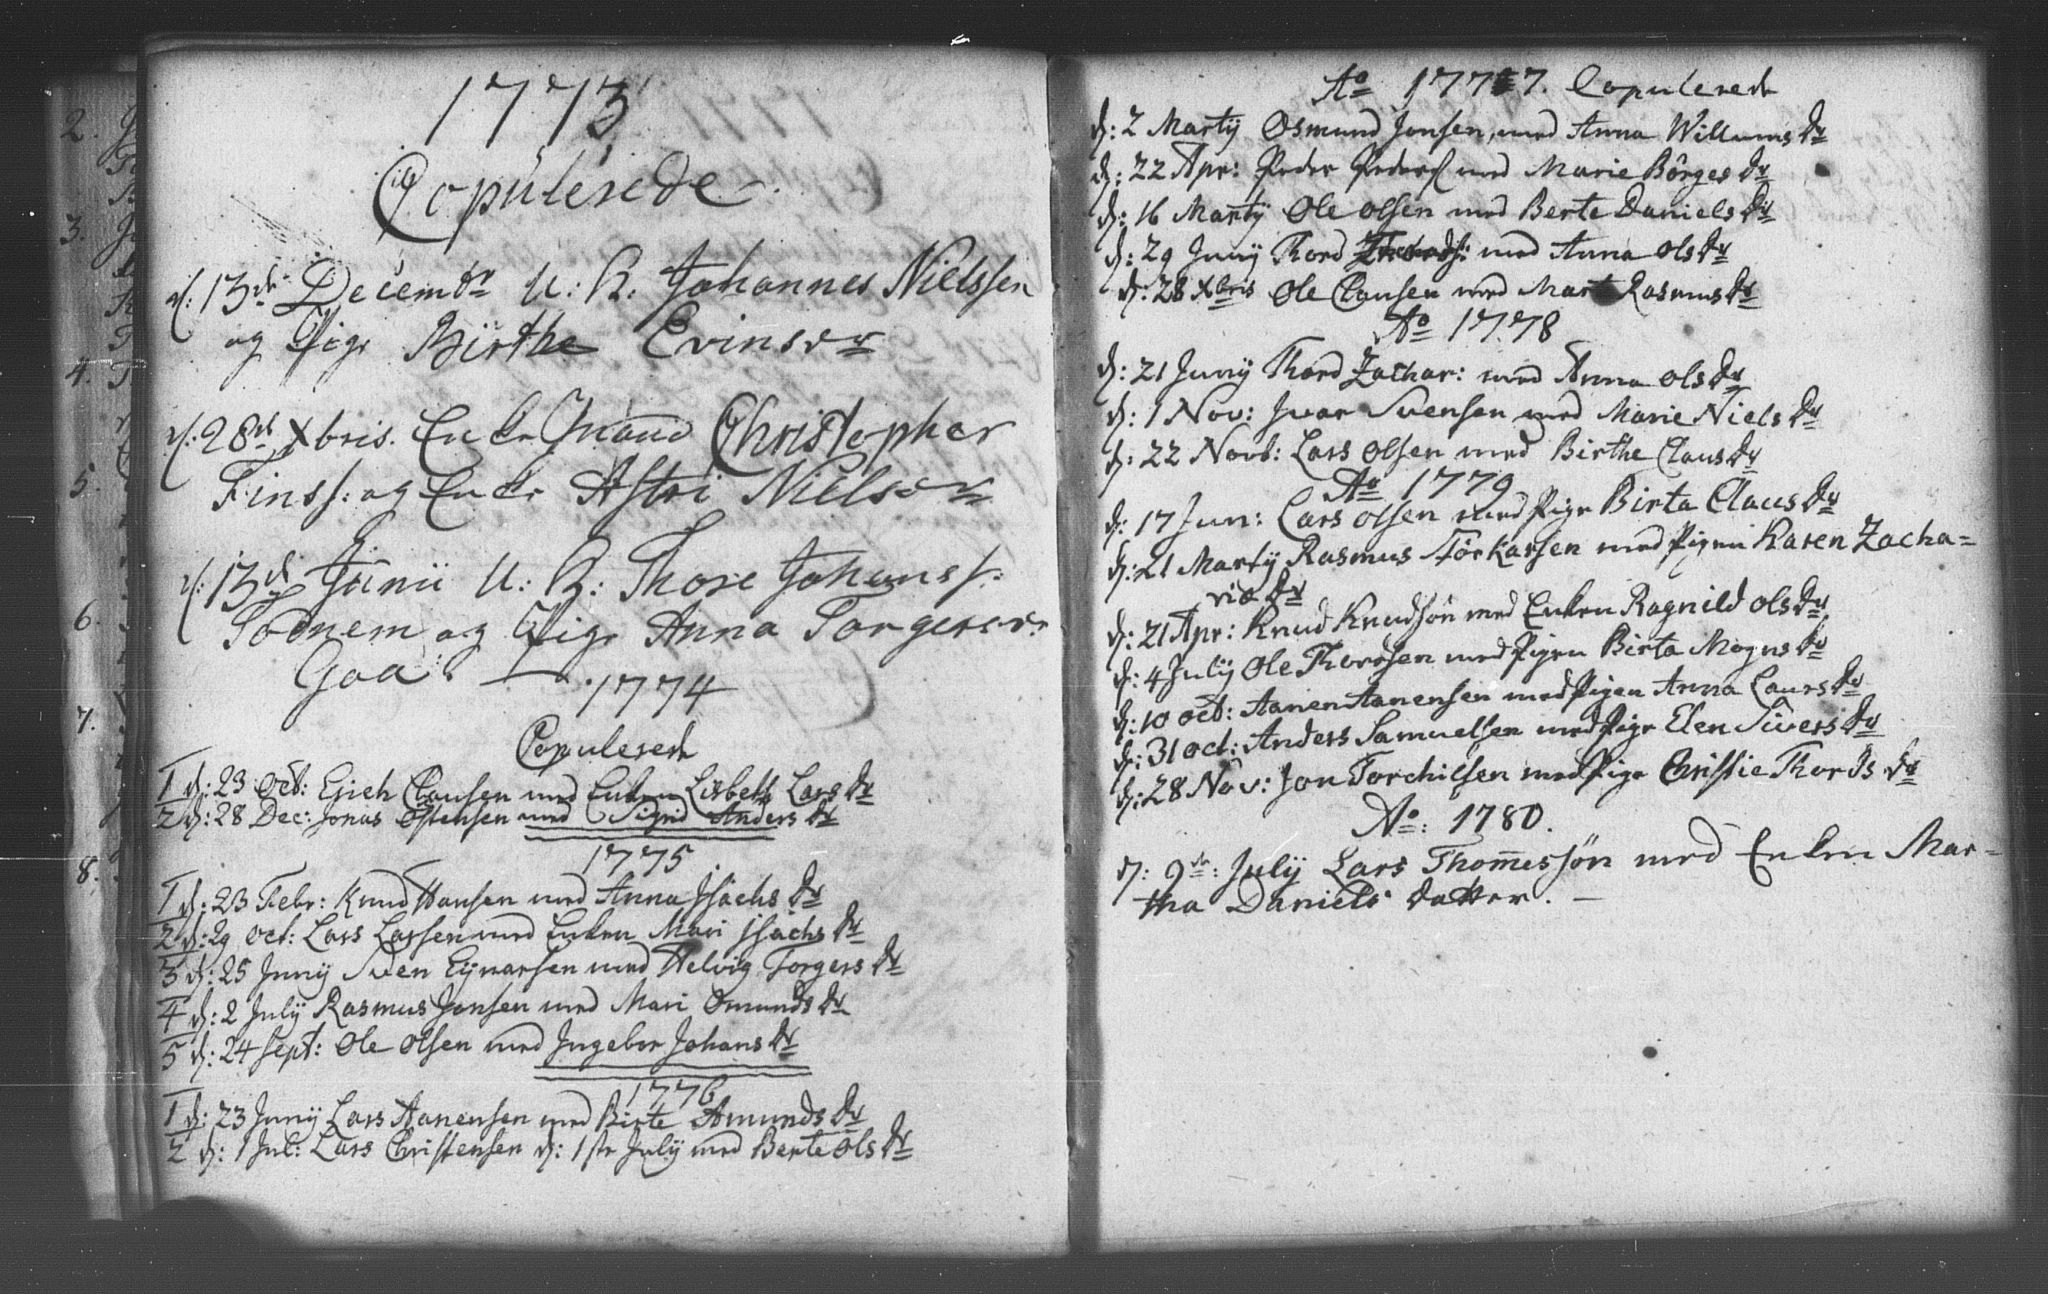 1773
Copulerede
d: 13de Decembr U: K. Johannes Nielssen
og Pige Birthe Evinsdr
d: 28d Xbris. Enke Mand Christopher
Finss: og Enke Astri Nielsdr
d: 13d Junii U: K: Thore Johanss:
Sodnem og Pige Anna Torgersdr
Goa: 1774
Copulerede
1 d: 23 Oct: Erich Clausen med Enken Lisbeth Larsdr
2 d: 28 Dec: Jonas Östensen med Signe Andersdr
1775
1 d: 23 Febr: Knud Hansen med Anna Jsachsdr
2 d: 29 oct: Lars Larsen med Enken Mari Jsachsdr
3 d: 25 Junij Sven Eynarsen med Helvig Torgersdr
4 d: 2 Julij Rasmus Jonsen med Mari Omundsdr
5 d: 24 sept: Ole Olsen med Jngebor Johansdr
1776
1 d: 23 Junij Lars Aanensen med Birte Amundsdr
2 d: 1 Jul: Lars Christensen d: 1ste Julij med Berte olsdr
2.
3.
4.
5.
6.
7.
8.
Ao 1777. Copulerede
d: 2 Martij Osmund Jonsen, med Anna Willumsdr
d: 22 Apr: Peder Peders med Marie Börgesdr
d: 16 Martij Ole olsen med Berte Danielsdr
d: 29 Junij Thord med Anna olsdr
d: 28 Xbris Ole Clausen med Mart Rasmusdr
Ao 1778
d: 21 Junij Thord Zachar: med Anna olsdr
d: 1 Nov: Jvar Svensen med Marie Nielsdr
d: 22 Novb: Lars Olsen med Birthe Clausdr
Ao 1779
d: 17 Jun: Lars olsen med Pige Birta Clausdr
d: 21 Martij Rasmus Törkarsen med Pigen Karen Zacha=
riædr
d: 21 Apr: Knud Knudsön med Enken Ragnild olsdr
d: 4 Julij Ole Thordsen med Pigen Birta Mognsdr
d: 10 oct: Aanen Aanensen med Pigen Anna Laursdr
d: 31 oct: Anders Samuelsen med Pige Elen Siversdr
d: 28 Nov: Jon Torchilsen med Pige Christie Thordsdr
Ao: 1780.
d: 9de: Julij Lars Thomesön med Enken Mar=
tha Daniels datter.